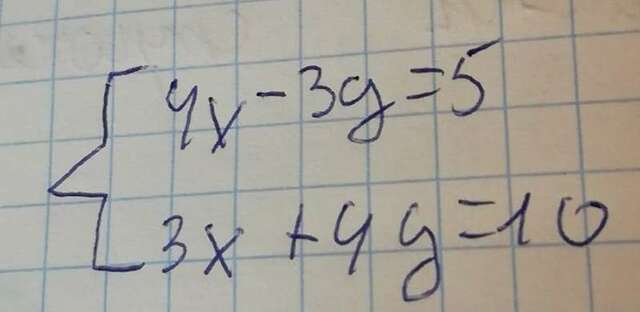 4x - 3y = 5
3x + 4y = 10